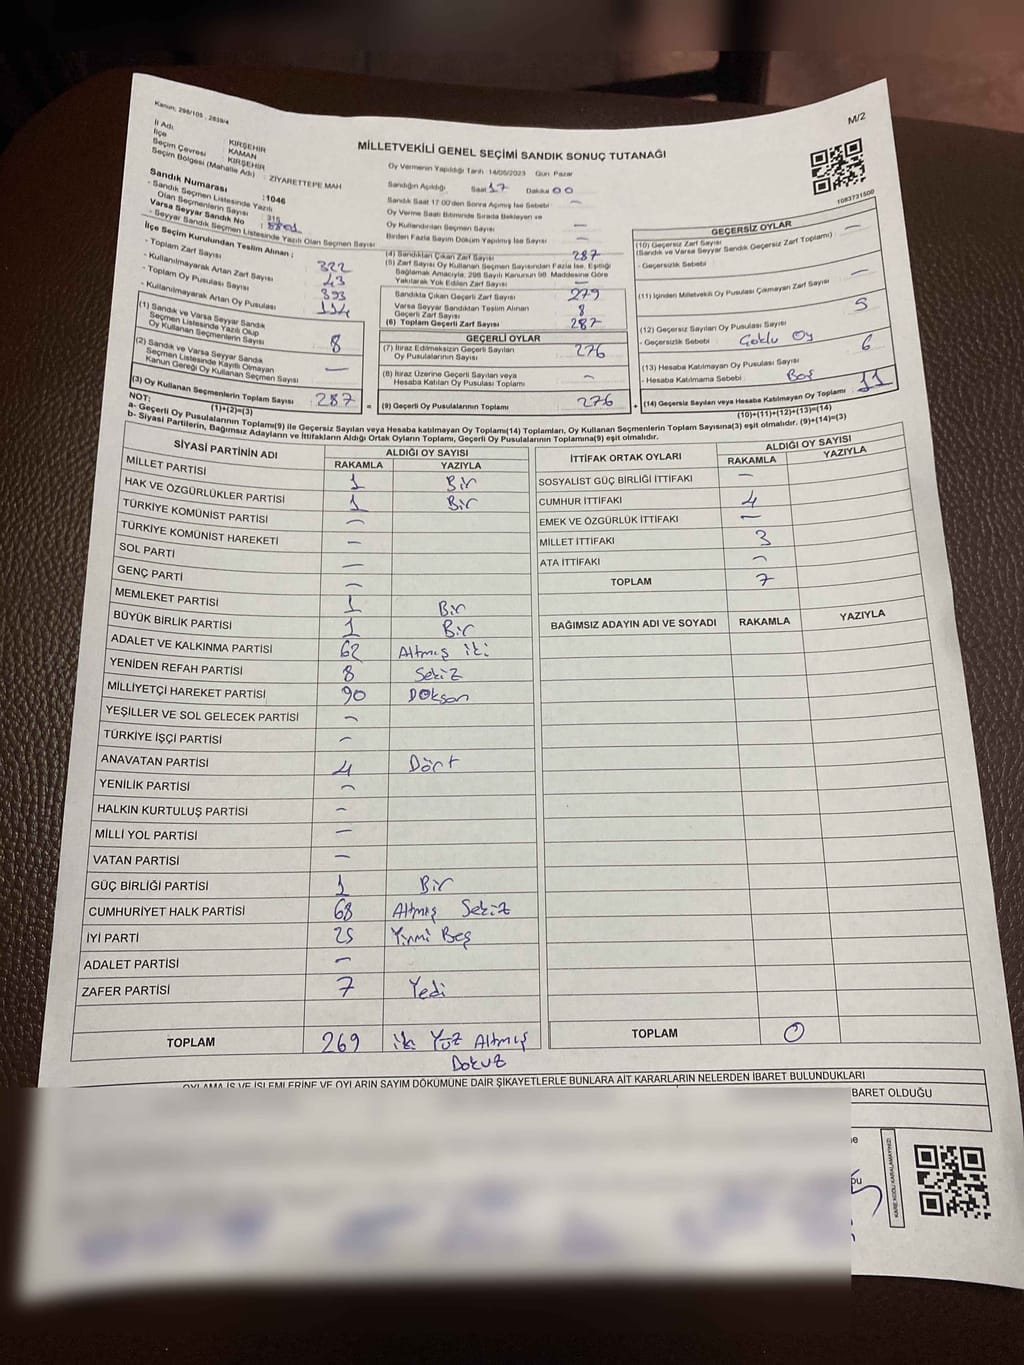 Kanun, 298/105 , 2839/4
M/2
MİLLETVEKİLİ GENEL SEÇİMİ SANDIK SONUÇ TUTANAĞI
İl Adı : KIRŞEHİR
İlçe : KAMAN
Seçim Çevresi : KIRŞEHİR
Seçim Bölgesi (Mahalle Adı) : ZİYARETTEPE MAH
Sandık Numarası : 1046
- Sandık Seçmen Listesinde Yazılı
Olan Seçmenlerin Sayısı : 315
Varsa Seyyar Sandık No : 8801
- Seyyar Sandık Seçmen Listesinde Yazılı Olan Seçmen Sayısı
İlçe Seçim Kurulundan Teslim Alınan ;
- Toplam Zarf Sayısı 322
- Kullanılmayarak Artan Zarf Sayısı 43
- Toplam Oy Pusulası Sayısı 393
- Kullanılmayarak Artan Oy Pusulası 114
(1) Sandık ve Varsa Seyyar Sandık
Seçmen Listesinde Yazılı Olup
Oy Kullanan Seçmenlerin Sayısı 8
(2) Sandık ve Varsa Seyyar Sandık
Seçmen Listesinde Kayıtlı Olmayan
Kanun Gereği Oy Kullanan Seçmen Sayısı —
(3) Oy Kullanan Seçmenlerin Toplam Sayısı 287
(1)+(2)=(3)
Oy Vermenin Yapıldığı Tarih 14/05/2023 Gün: Pazar
Sandığın Açıldığı Saat 17 Dakika 00
Sandık Saat 17:00'den Sonra Açılmış İse Sebebi —
Oy Verme Saati Bitiminde Sırada Bekleyen ve
Oy Kullandırılan Seçmen Sayısı —
Birden Fazla Sayım Döküm Yapılmış İse Sayısı —
(4) Sandıktan Çıkan Zarf Sayısı 287
(5) Zarf Sayısı Oy Kullanan Seçmen Sayısından Fazla İse, Eşitliği
Sağlamak Amacıyla, 298 Sayılı Kanunun 98. Maddesine Göre
Yakılarak Yok Edilen Zarf Sayısı —
Sandıkta Çıkan Geçerli Zarf Sayısı 279
Varsa Seyyar Sandıktan Teslim Alınan
Geçerli Zarf Sayısı 8
(6) Toplam Geçerli Zarf Sayısı 287
GEÇERLİ OYLAR
(7) İtiraz Edilmeksizin Geçerli Sayılan
Oy Pusulalarının Sayısı 276
(8) İtiraz Üzerine Geçerli Sayılan veya
Hesaba Katılan Oy Pusulası Toplamı —
= (9) Geçerli Oy Pusulalarının Toplamı 276
1083731500
GEÇERSİZ OYLAR
(10) Geçersiz Zarf Sayısı
(Sandık ve Varsa Seyyar Sandık Geçersiz Zarf Toplamı) : —
- Geçersizlik Sebebi
(11) İçinden Milletvekili Oy Pusulası Çıkmayan Zarf Sayısı —
(12) Geçersiz Sayılan Oy Pusulası Sayısı 5
- Geçersizlik Sebebi : Çoklu Oy
(13) Hesaba Katılmayan Oy Pusulası Sayısı 6
- Hesaba Katılmama Sebebi : Boş
+ (14) Geçersiz Sayılan veya Hesaba Katılmayan Oy Toplamı 11
(10)+(11)+(12)+(13)=(14)
NOT:
a- Geçerli Oy Pusulalarının Toplamı(9) ile Geçersiz Sayılan veya Hesaba katılmayan Oy Toplam(14) Toplamları, Oy Kullanan Seçmenlerin Toplam Sayısına(3) eşit olmalıdır. (9)+(14)=(3)
b- Siyasi Partilerin, Bağımsız Adayların ve İttifakların Aldığı Ortak Oyların Toplamı, Geçerli Oy Pusulalarının Toplamına(9) eşit olmalıdır.
SİYASİ PARTİNİN ADI ALDIĞI OY SAYISI
RAKAMLA YAZIYLA
MİLLET PARTİSİ 1 Bir
HAK VE ÖZGÜRLÜKLER PARTİSİ 1 Bir
TÜRKİYE KOMÜNİST PARTİSİ —
TÜRKİYE KOMÜNİST HAREKETİ —
SOL PARTİ —
GENÇ PARTİ —
MEMLEKET PARTİSİ 1 Bir
BÜYÜK BİRLİK PARTİSİ 1 Bir
ADALET VE KALKINMA PARTİSİ 62 Altmış iki
YENİDEN REFAH PARTİSİ 8 Sekiz
MİLLİYETÇİ HAREKET PARTİSİ 90 Doksan
YEŞİLLER VE SOL GELECEK PARTİSİ —
TÜRKİYE İŞÇİ PARTİSİ —
ANAVATAN PARTİSİ 4 Dört
YENİLİK PARTİSİ —
HALKIN KURTULUŞ PARTİSİ —
MİLLİ YOL PARTİSİ —
VATAN PARTİSİ —
GÜÇ BİRLİĞİ PARTİSİ 1 Bir
CUMHURİYET HALK PARTİSİ 68 Altmış Sekiz
İYİ PARTİ 25 Yirmi Beş
ADALET PARTİSİ —
ZAFER PARTİSİ 7 Yedi
TOPLAM 269 iki Yüz Altmış
Dokuz
İTTİFAK ORTAK OYLARI ALDIĞI OY SAYISI
RAKAMLA YAZIYLA
SOSYALİST GÜÇ BİRLİĞİ İTTİFAKI —
CUMHUR İTTİFAKI 4
EMEK VE ÖZGÜRLÜK İTTİFAKI —
MİLLET İTTİFAKI 3
ATA İTTİFAKI —
TOPLAM 7
BAĞIMSIZ ADAYIN ADI VE SOYADI RAKAMLA YAZIYLA
TOPLAM 0
OYLAMA İŞ VE İŞLEMLERİNE VE OYLARIN SAYIM DÖKÜMÜNE DAİR ŞİKAYETLERLE BUNLARA AİT KARARLARIN NELERDEN İBARET BULUNDUKLARI
BARET OLDUĞU
KARE KODU KARALAMAYINIZ!